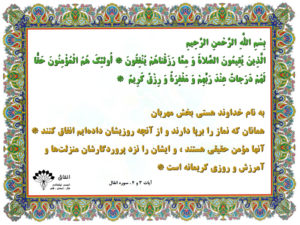 بِسْمِ اللَّهِ الرَّحْمَنِ الرَّحِيمِ
الَّذِينَ يُقِيمُونَ الصَّلاةَ وَ مِمَّا رَزَقْنَاهُمْ يُنْفِقُونَ * أُولَئِكَ هُمُ الْمُؤْمِنُونَ حَقًّا
لَهُمْ دَرَجَاتٌ عِنْدَ رَبِّهِمْ وَ مَغْفِرَةٌ وَ رِزْقٌ كَرِيمٌ *
به نام خداوند هستی بخش مهربان
همانان که نماز را برپا دارند و از آنچه روزیشان داده‌ایم انفاق کنند *
آنها مؤمن حقیقی هستند ، و ایشان را نزد پروردگارشان منزلت‌ها و
آمرزش و روزی کریمانه است *
آیات ۳ و ۴ ، سوره انفال
انفاق